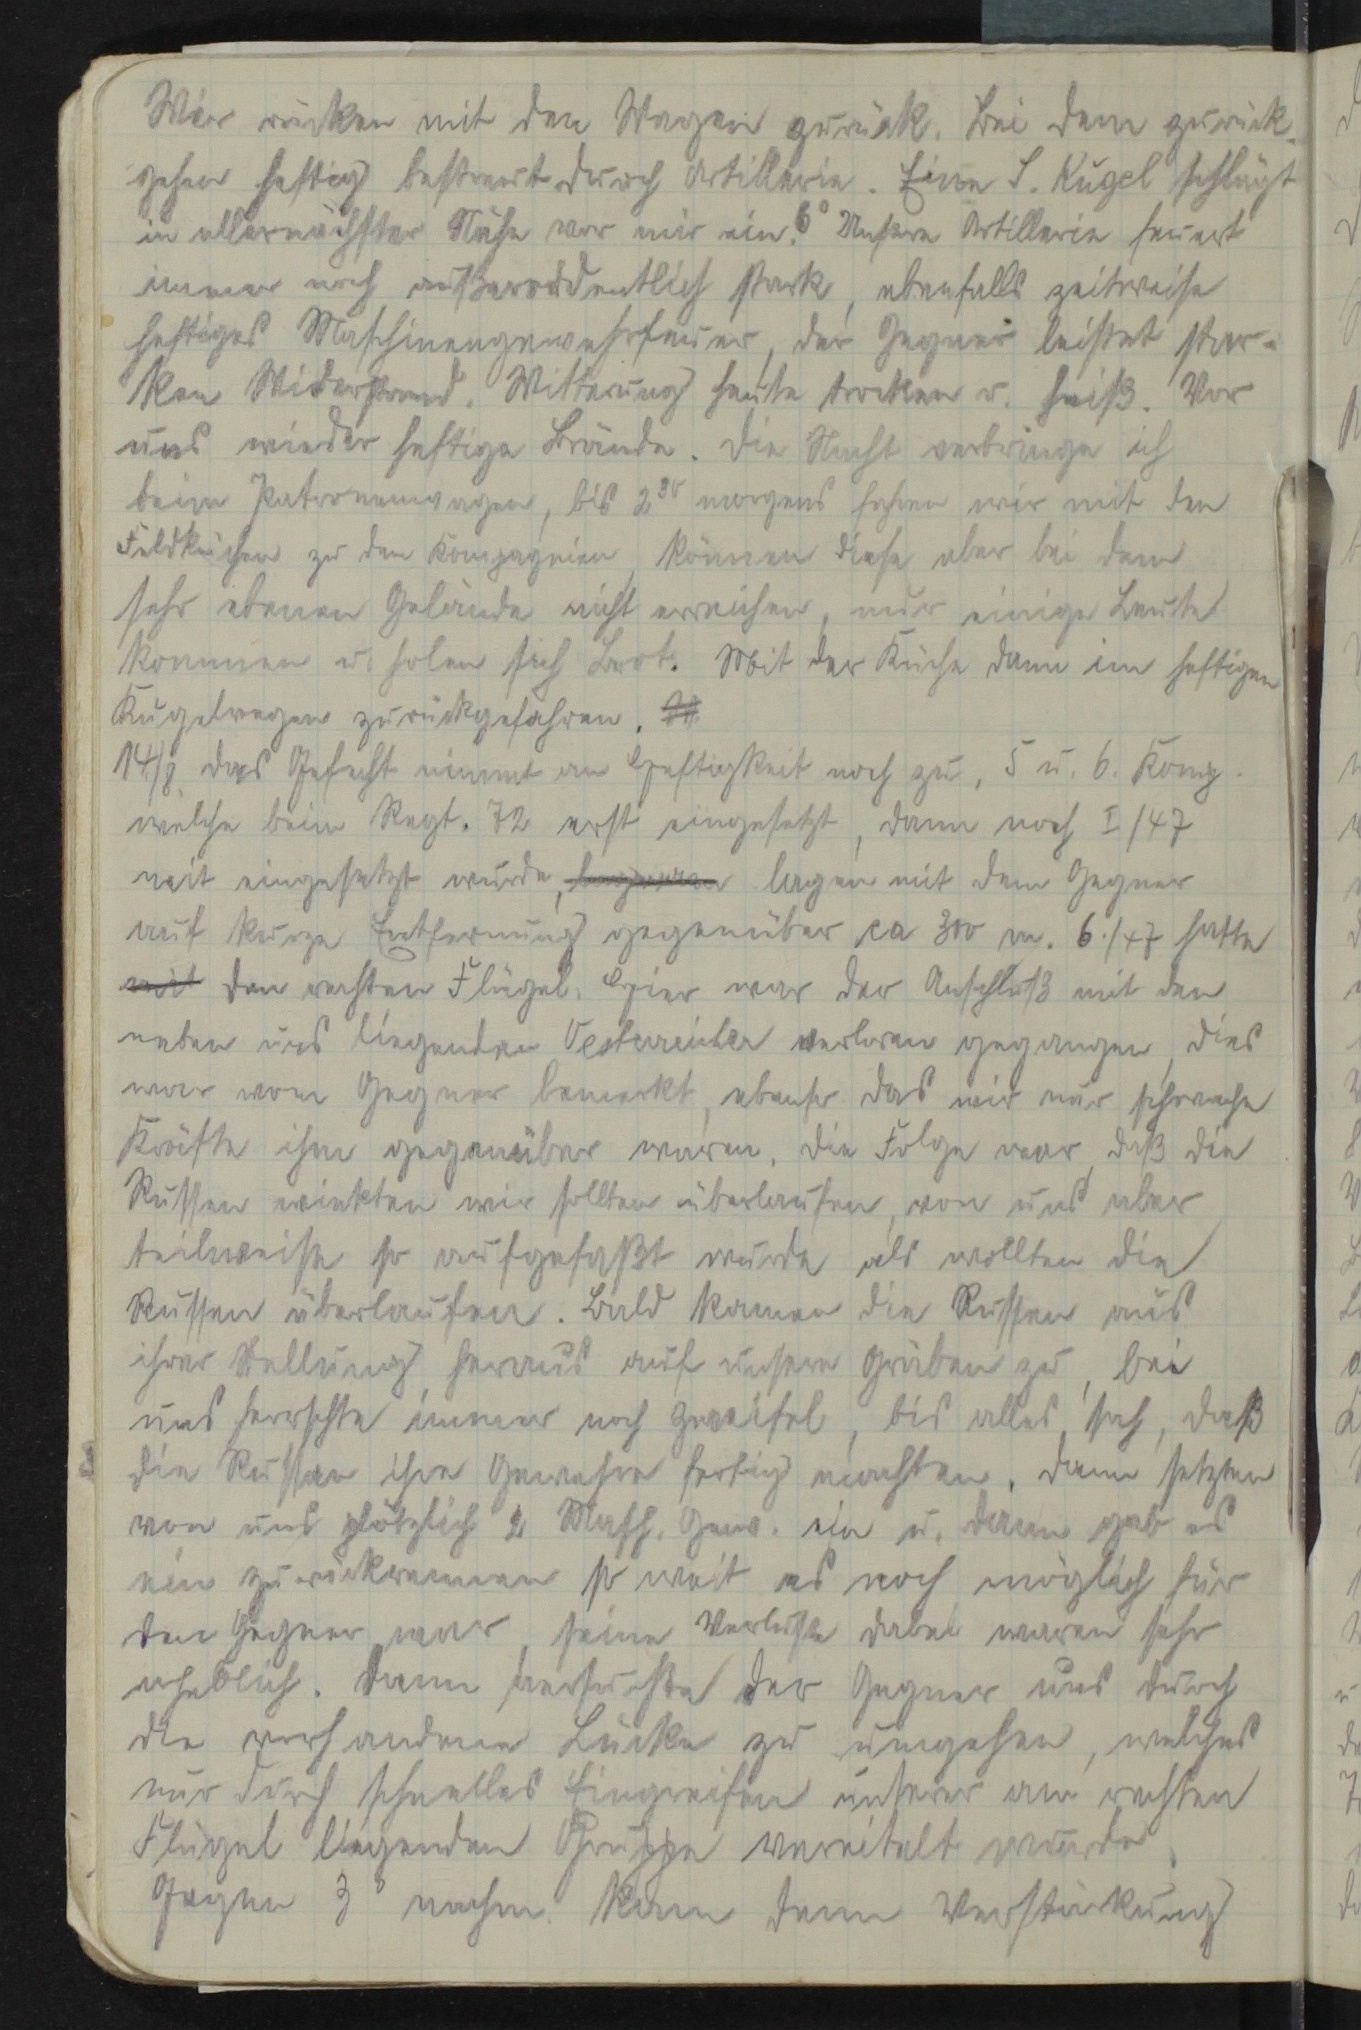 Wir rücken mit den Wagen zurück. Bei dem zurück-
gehen heftig bestreut durch Artillerie. Eine S. Kugel schlägt
in allernächster Nähe vor mir ein. 6° Unsere Artillerie feuert
immer noch außerordentlich stark, ebenfalls zeitweise
heftiges Maschinengewehrfeuer, der Gegner leistet star-
ken Widerstand. Witterung heute trocken u. heiß. Vor
uns wieder heftige Brände. Die Nacht verbringe ich
beim Patronenwagen, bis 2³⁰ morgens fahren wir mit den
Feldküchen zu den Kompagnien, können diese aber bei dem
sehr ebenen Gelände nicht erreichen, nur einige Leute
kommen u. holen sich Brot. Mit der Küche dann im heftigen
Kugelregen zurückgefahren.
14/8. das Gefecht nimmt an Heftigkeit noch zu, 5 u. 6. Komp.
welche beim Regt. 72 erst eingesetzt, dann noch I/47
mit eingesetzt wurde, lagen mit dem Gegner
auf kurze Entfernung gegenüber ca 300 m. 6./47 hatte
mit den rechten Flügel. Hier war der Anschluß mit den
neben uns liegenden Oesterreicher verloren gegangen, dies
war vom Gegner bemerkt, ebenso das wir nur schwache
Kräfte ihm gegenüber waren. Die Folge war, daß die
Russen winkten wir sollten überlaufen, von uns aber
teilweise so aufgefaßt wurde als wollten die
Russen überlaufen. Bald kamen die Russen aus
ihrer Stellung heraus auf unsere Gräben zu, bei
uns herrschte immer noch Zweifel, bis alles sah, daß
die Russen ihre Gewehre fertig machten. Dann setzten
von uns plötzlich 2 Masch. Gew. ein u. dann gab es
ein zurückrennen so weit es noch möglich für
den Gegner war, seine Verluste dabei waren sehr
erheblich. Dann versuchte der Gegner uns durch
die vorhandene Lücke zu umgehen, welches
nur durch schnelles Eingreifen unserer am rechten
Flügel liegenden Gruppe vereitelt wurde.
Gegen 3° nachm. kam dann Verstärkung